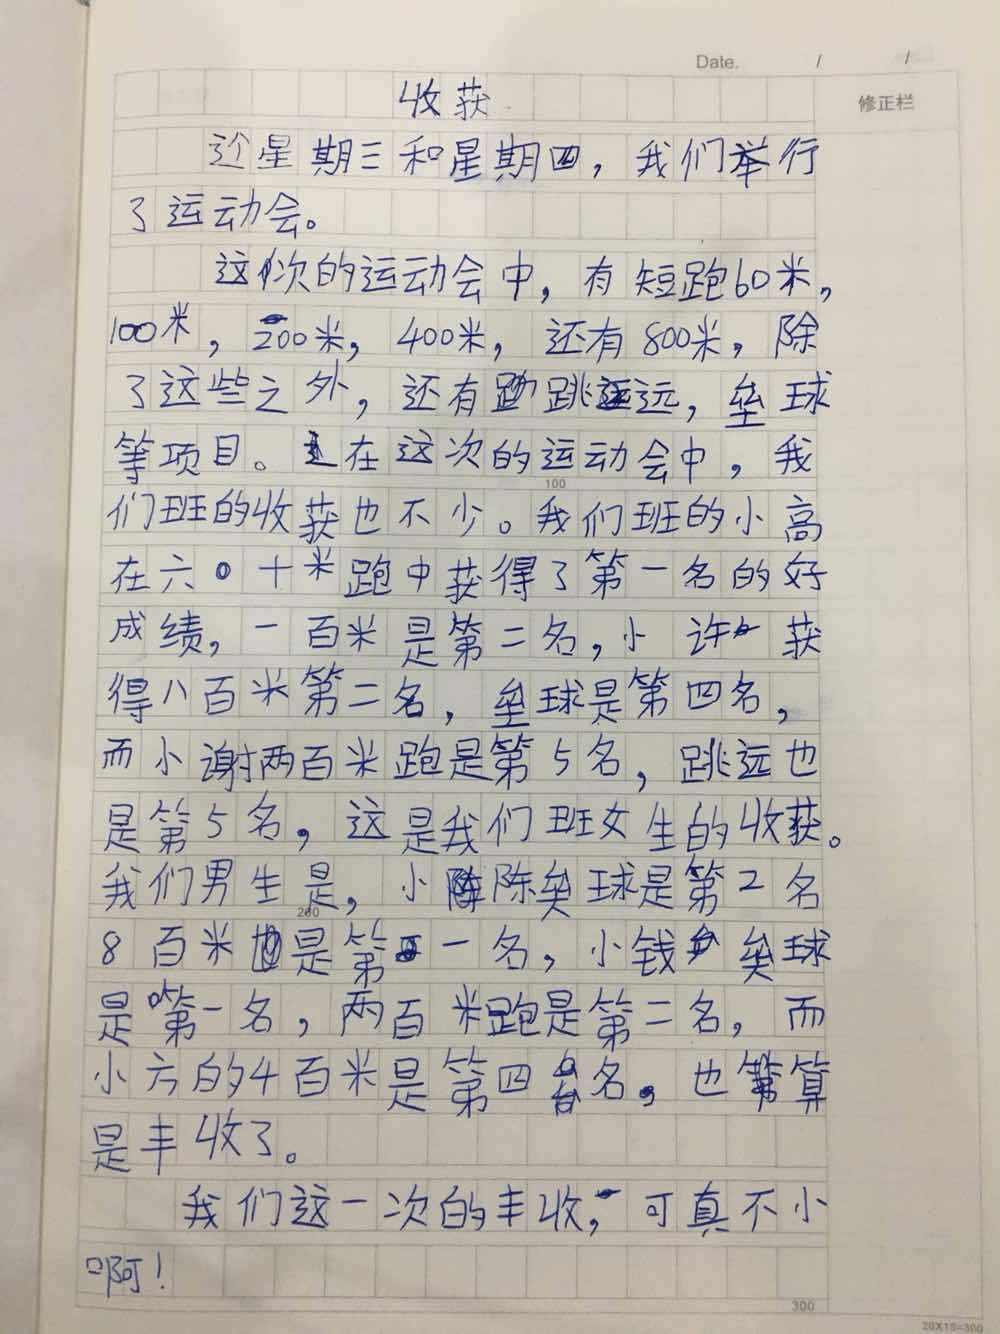 Date. / /
修正栏
收获
这星期三和星期四，我们举行
了运动会。
这次的运动会中，有短跑60米，
100米，200米，400米，还有800米，除
了这些之外，还有跳远，垒球
等项目。在这次的运动会中，我
100
们班的收获也不少。我们班的小高
在六十米跑中获得了第一名的好
成绩，一百米是第二名，小许获
得八百米第二名，垒球是第四名，
而小谢两百米跑是第5名，跳远也
是第5名，这是我们班女生的收获。
我们男生是，小陈垒球是第2名
200
8百米是第一名，小钱垒球
是第一名，两百米跑是第二名，而
小方的4百米是第四名。也算
是丰收了。
我们这一次的丰收，可真不小
啊！
300
20X15=300